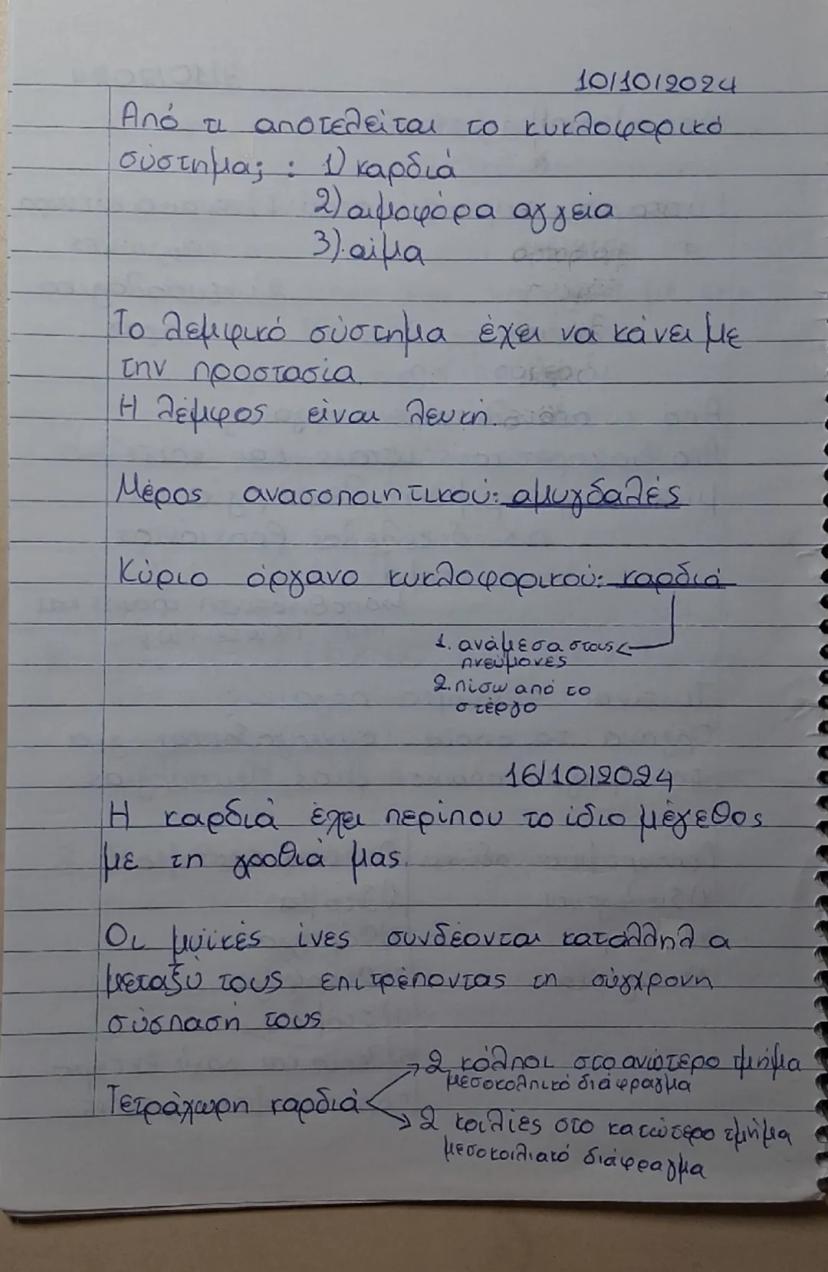 10/10/2024
Από τι αποτελείται το κυκλοφορικό
σύστημα; : 1) καρδιά
2) αιμοφόρα αγγεία
3) αίμα
Το λεμφικό σύστημα έχει να κάνει με
την προστασία
Η λέμφος είναι λευκή.
Μέρος ανασοποιητικού: αμυγδαλές
Κύριο όργανο κυκλοφορικού: καρδιά
1. ανάμεσα στους
πνεύμονες
2. πίσω από το
στέργο
16/10/2024
Η καρδιά έχει περίπου το ίδιο μέγεθος
με τη γροθιά μας.
Οι μυϊκές ίνες συνδέονται κατάλληλα
μεταξύ τους επιτρέποντας τη σύγχρονη
σύσπασή τους
→ 2 κόλποι στο ανώτερο τμήμα
μεσοκολπικό διάφραγμα
Τετράχωρη καρδιά
→ 2 κοιλίες στο κατώτερο τμήμα
μεσοκοιλιακό διάφραγμα